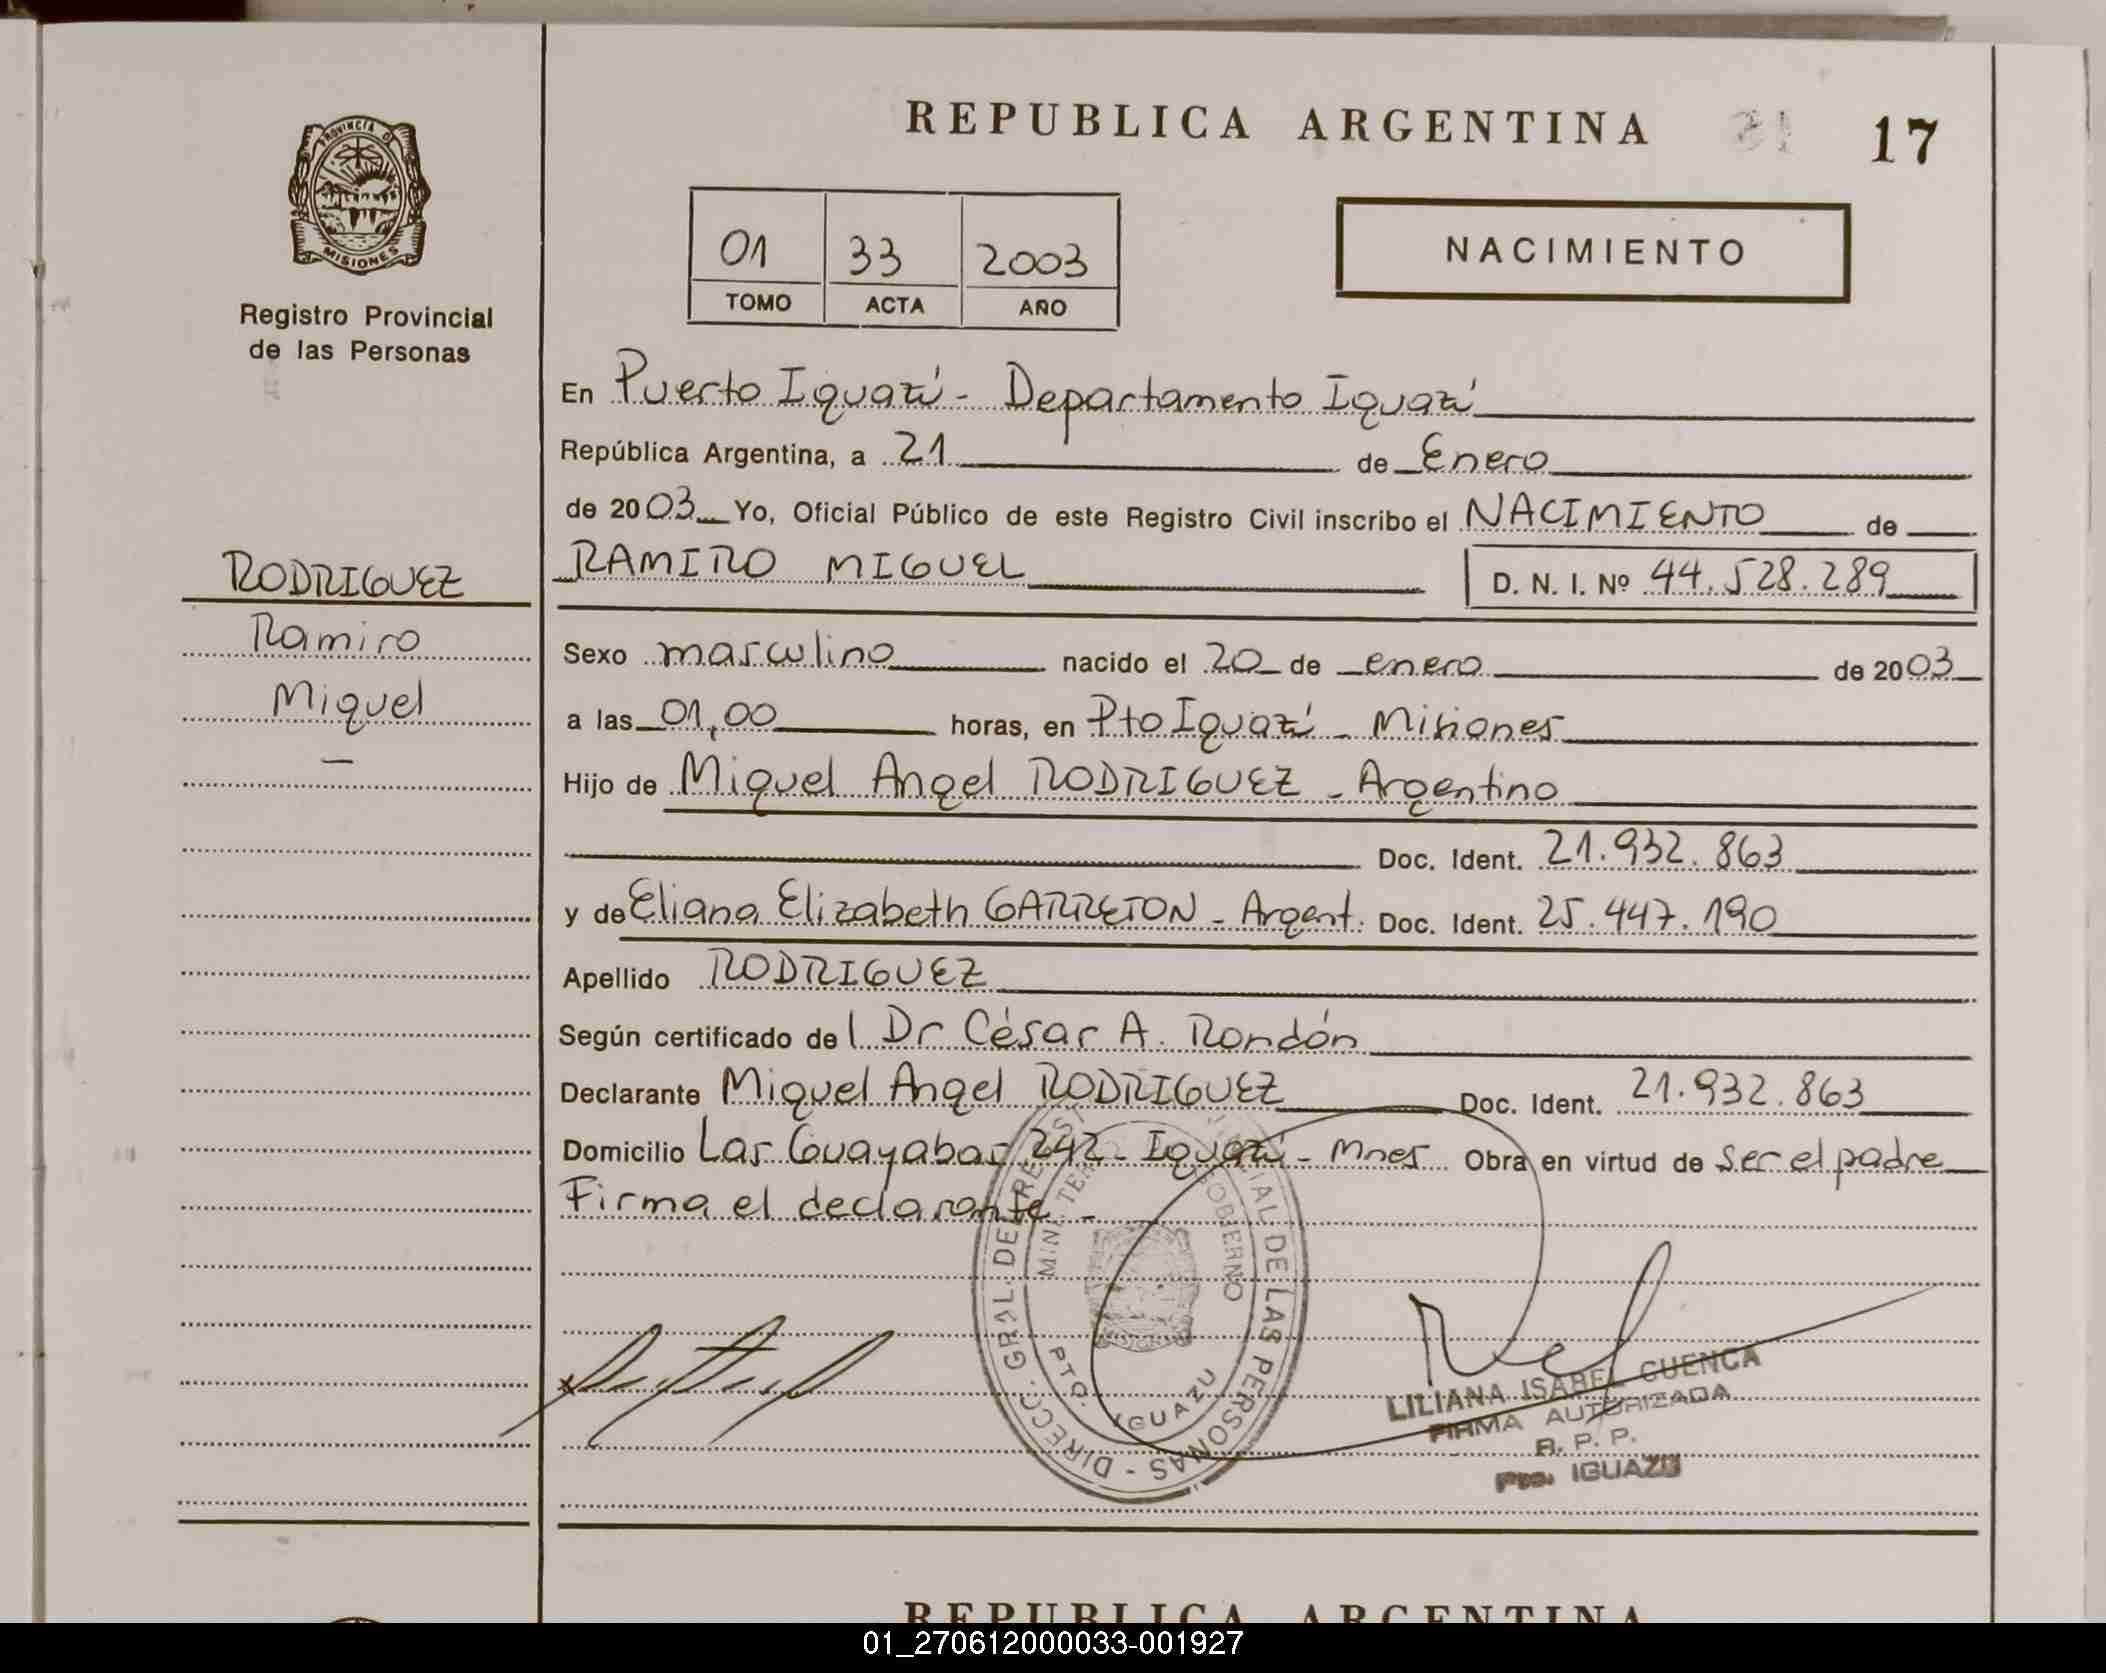 REPUBLICA ARGENTINA
17
PROVINCIA D
MISIONES
Registro Provincial
de las Personas
01 33 2003
TOMO ACTA AÑO
NACIMIENTO
En Puerto Iguazú - Departamento Iguazú
República Argentina, a 21 de Enero
de 2003 Yo, Oficial Público de este Registro Civil inscribo el NACIMIENTO de
RAMIRO MIGUEL D. N. I. Nº 44.528.289
RODRIGUEZ
Ramiro
Miguel
Sexo masculino nacido el 20 de enero de 2003
a las 01,00 horas, en Pto Iguazú - Misiones
Hijo de Miguel Angel RODRIGUEZ - Argentino
Doc. Ident. 21.932.863
y de Eliana Elizabeth GARRETON - Argent. Doc. Ident. 25.447.190
Apellido RODRIGUEZ
Según certificado de l Dr César A. Rondón
Declarante Miguel Angel RODRIGUEZ Doc. Ident. 21.932.863
Domicilio Las Guayabas 242 - Iguazú - Mnes Obra en virtud de ser el padre
Firma el declarante -
DIRECC. GRAL. DE REGIST CIAL DE LAS PERSONAS
GOBIERNO
PTO. IGUAZU
LILIANA ISABEL CUENCA
FIRMA AUTORIZADA
R. P. P.
Pto. IGUAZU
REPUBLICA ARGENTINA
01_270612000033-001927